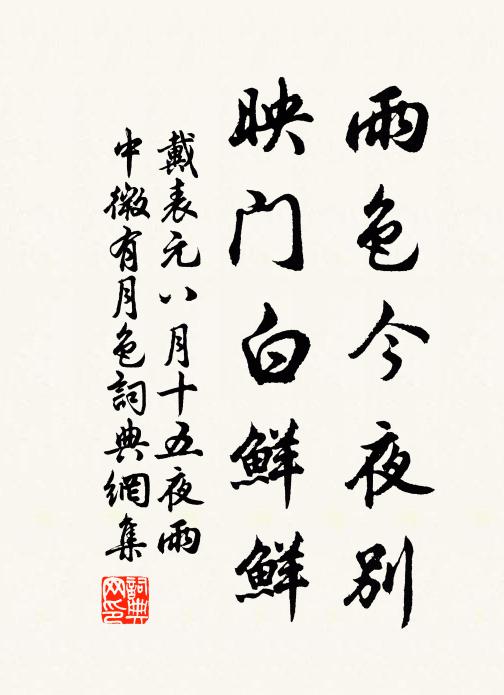 雨色今夜別
映门白鮮鮮
戴表元八月十五夜雨
中微有月色詞典網集
詞典
网印